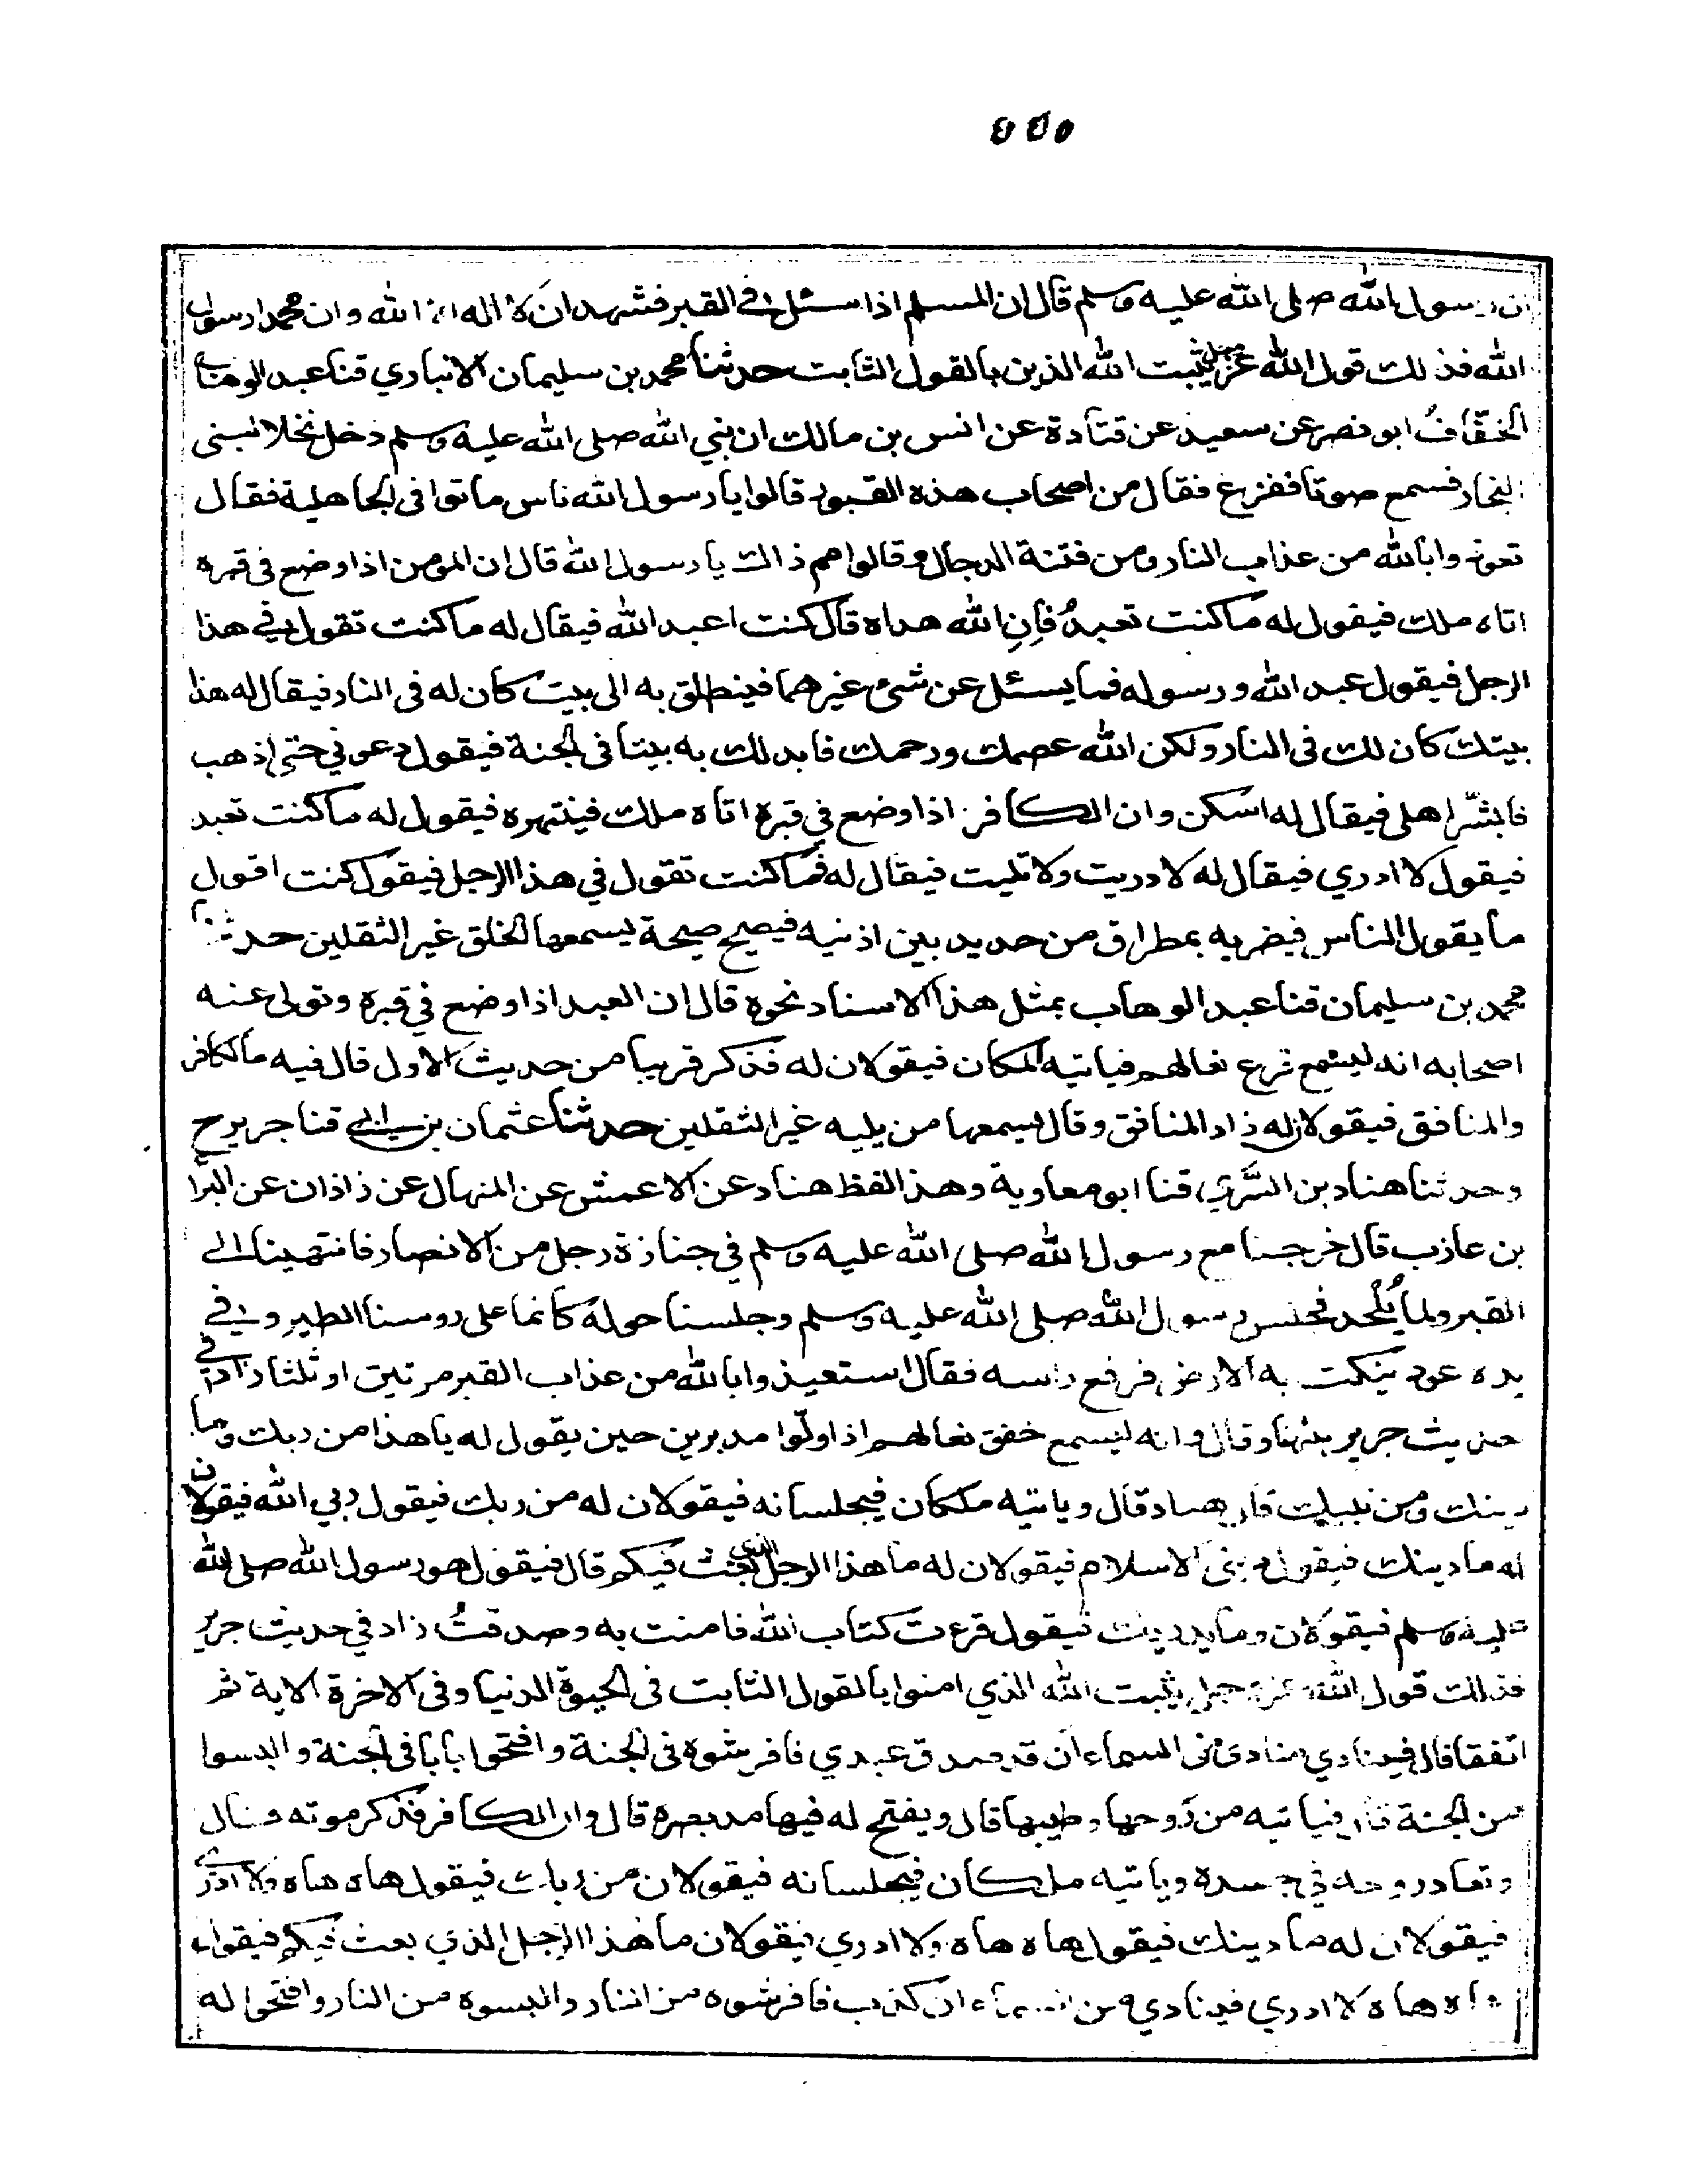 ٥٥٥
ان رسول الله صلى الله عليه وسلم قال ان المسلم اذا سئل في القبر فشهد ان لا اله الا الله وان محمدا رسول
الله فذلك قول الله عز وجل يثبت الله الذين بالقول الثابت حدثنا محمد بن سليمان الانباري قثنا عبد الوهاب
الخفّافُ ابو نصر عن سعيد عن قتادة عن انس بن مالك ان نبي الله صلى الله عليه وسلم دخل نخلا لبنى
النجار فسمع صوتا ففزع فقال من اصحاب هذه القبور قالوا يا رسول الله ناس ماتوا فى الجاهلية فقال
تعوذوا بالله من عذاب النار ومن فتنة الدجال وقالوا مم ذالك يا رسول الله قال ان المؤمن اذا وضع في قبره
اتاه ملك فيقول له ما كنت تعبدُ فإنِ الله هداه قال كنت اعبد الله فيقال له ما كنت تقول في هذا
الرجل فيقول عبد الله ورسوله فما يسئل عن شئ غيرهما فينطلق به الى بيت كان له فى النار فيقال له هذا
بيتك كان لك فى النار ولكن الله عصمك ورحمك فابدلك به بيتا فى الجنة فيقول دعوني حتى اذهب
فابشّر اهلى فيقال له اسكن وان الكافر اذا وضع في قبره اتاه ملك فينتهره فيقول له ما كنت تعبد
فيقول لا ادري فيقال له لا دريت ولا تليت فيقال له فما كنت تقول في هذا الرجل فيقول كنت اقول
ما يقول الناس فيضربه بمطراق من حديد بين اذنيه فيصيح صيحة يسمعها الخلق غير الثقلين حدثنا
محمد بن سليمان قثنا عبد الوهاب بمثل هذا الاسناد نحوه قال ان العبد اذا وضع في قبره وتولى عنه
اصحابه انه ليسمع قرع نعالهم فياتيه الملكان فيقولان له فذكر قريبا من حديث الاول قال فيه مالكافر
والمنافق فيقولان له زاد المنافق وقال يسمعها من يليه غير الثقلين حدثنا عثمان بن ابي قثنا جرير ح
وحدثنا هناد بن السَّري قثنا ابو معاوية وهذا لفظ هناد عن الاعمش عن المنهال عن زاذان عن البرا
بن عازب قال خرجنا مع رسول الله صلى الله عليه وسلم في جنازة رجل من الانصار فانتهينا الي
القبر ولما يُلْحد فجلس رسول الله صلى الله عليه وسلم وجلسنا حوله كانما على روسنا الطير وفي
يده عود ينكت به الارض فرفع راسه فقال استعيذوا بالله من عذاب القبر مرتين او ثلثا زاد في
حديث جرير ههنا وقال وانه ليسمع خفق نعالهم اذا ولّوا مدبرين حين يقول له يا هذا من ربك وما
دينك ومن نبيك قال هناد قال وياتيه ملكان فيجلسانه فيقولان له من ربك فيقول ربي الله فيقولان
له ما دينك فيقول دينى الاسلام فيقولان له ما هذا الرجل الذي بعث فيكم قال فيقول هو رسول الله صلى الله
عليه وسلم فيقولان وما يدريك فيقول قرءت كتاب الله فامنت به وصدقتُ زاد في حديث جرير
فذلك قول الله عز وجل يثبت الله الذي امنوا بالقول الثابت فى الحيوة الدنيا وفى الاخرة الاية ثم
اتفقا قال فينادي منادى من السماء ان قد صدق عبدي فافرشوه فى الجنة وافتحوا بابا فى الجنة والبسوا
من الجنة قال فياتيه من رَوحها وطيبها قال ويفتح له فيها مد بصره قال وان الكافر فذكر موته وقال
وتعاد روحه في جسده وياتيه ملكان فيجلسانه فيقولان من ربك فيقول هاه هاه ولا ادرى
فيقولان له ما دينك فيقول هاه هاه ولا ادري فيقولان ما هذا الرجل الذي بعث فيكم فيقول
هاه هاه لا ادري فينادي من السماء ان كذب فافرشوه من النار والبسوه من النار وافتحوا له